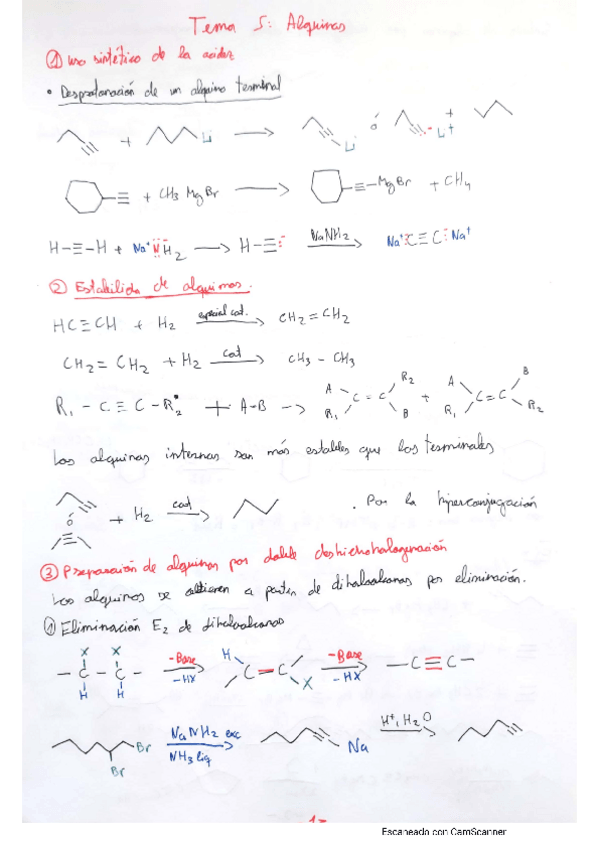 Tema 5: Alquinos
① uso sintético de la acidez
• Desprotonación de un alquino terminal
+ Li → Li ó - Li+ +
≡ + CH3 MgBr → ≡-MgBr + CH4
H-≡-H + Na+ NH2 → H-≡:- NaNH2 → Na+ :C≡C: Na+
② Estabilida de alquinos.
HC≡CH + H2 especial cat. → CH2=CH2
CH2=CH2 + H2 cat → CH3-CH3
R1-C≡C-R2 + A-B → A R1 C=C R2 B + A R1 C=C B R2
Los alquinos internos son más estables que los terminales
ó + H2 cat → . Por la hiperconjugación
③ Preparación de alquinos por doble deshidrohalogenación
Los alquinos se obtienen a partir de dihaloalcanos por eliminación.
① Eliminación E2 de dihaloalcanos
X X -C-C- H H -Base -HX → H C=C X -Base -HX → -C≡C-
Br Br NaNH2 exc NH3 liq → Na H+, H2O →
1-
Escaneado con CamScanner